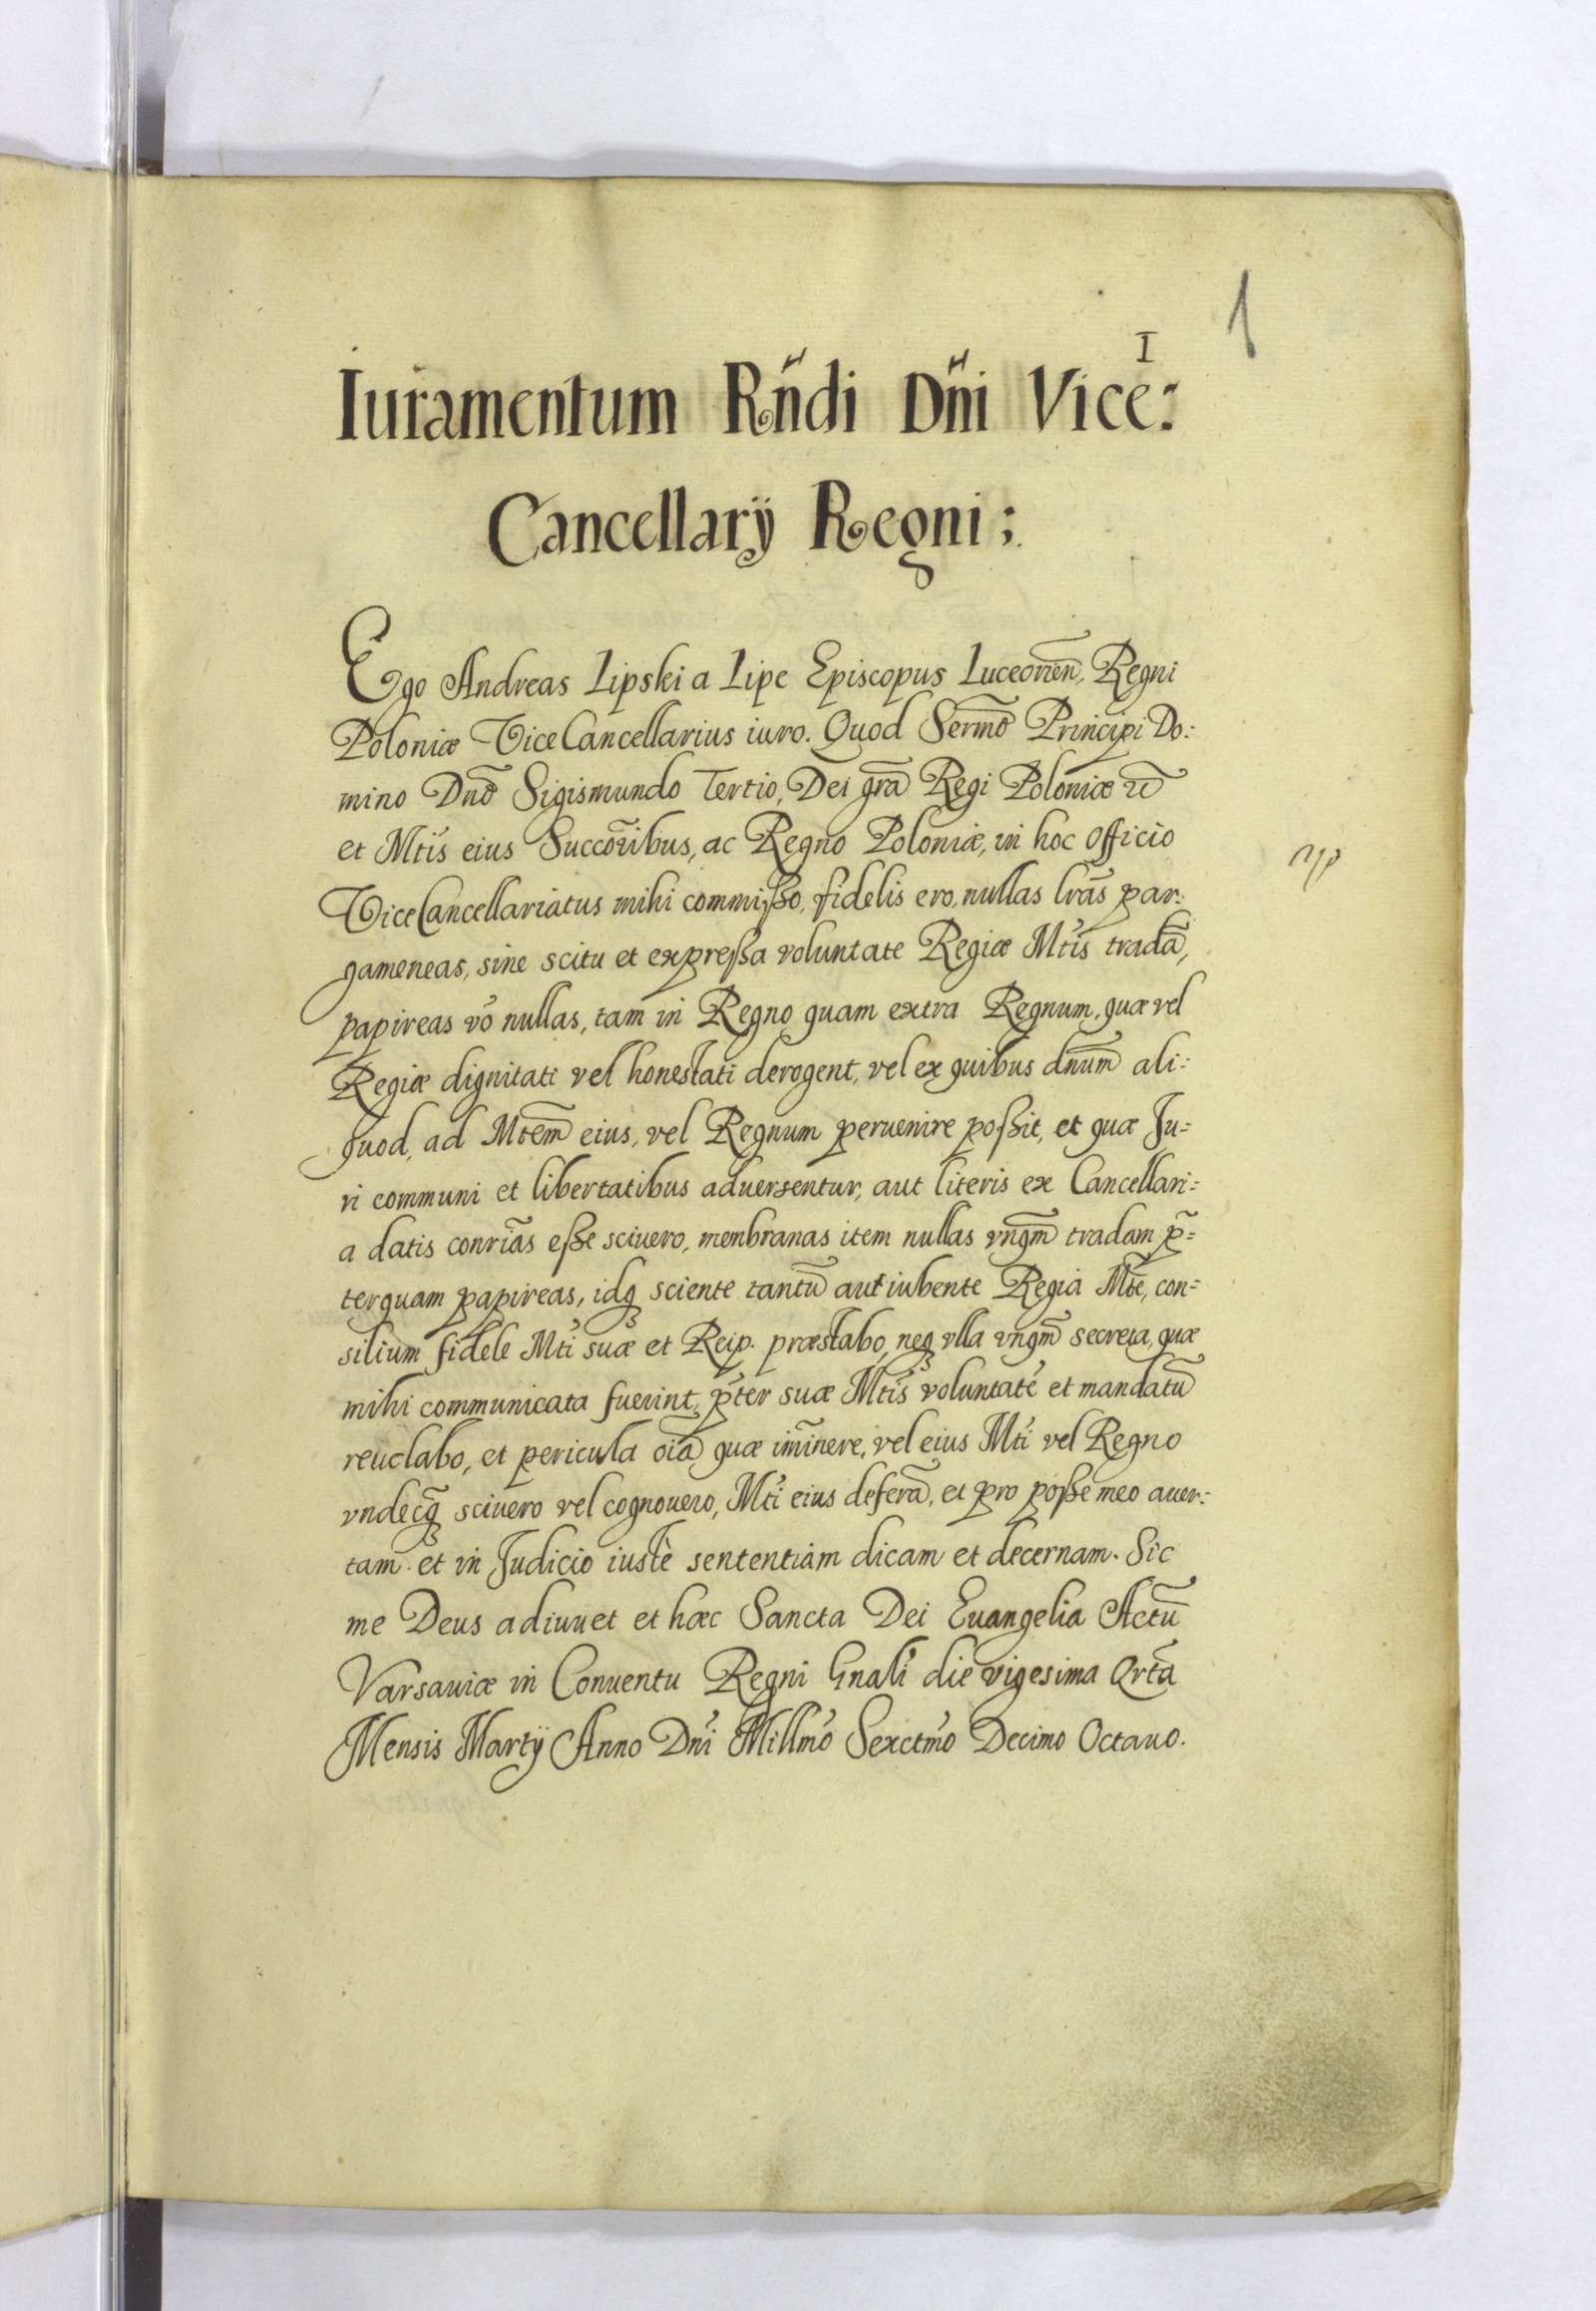 1
I
Iuramentum Rñdi Dñi Vice:
Cancellarÿ Regni;
Ego Andreas Lipski a Lipe Episcopus Luceorien̄, Regni
Poloniæ ViceCancellarius iuro. Quod Sermō Principi Do:
mino Dnō Sigismundo Tertio, Dei grā Regi Poloniæ
et Mtis eius Succōribus, ac Regno Poloniæ, in hoc officio
ViceCancellariatus mihi commißo, fidelis ero, nullas lrās par:
gameneas, sine scitu et expreßa voluntate Regiæ Mtis tradā,
papireas vō nullas, tam in Regno quam extra Regnum, quæ vel
Regiæ dignitati vel honestati derogent, vel ex quibus dnūm ali:
quod, ad Mtēm eius, vel Regnum peruenire poßit, et quæ Ju=
ri communi et libertatibus aduersentur, aut literis ex Cancellari=
a datis conriās eße sciuero, membranas item nullas vnqm̄ tradam p̄=
terquam papireas, idq₃ sciente tantū aut iubente Regia Mte, con=
silium fidele Mti suæ et Reip. præstabo, neq₃ vlla vnqm̄ secreta, quæ
mihi communicata fuerint, p̄ter suæ Mtis voluntatē et mandatū
reuelabo, et pericula oīa quæ im̄inere, vel eius Mti vel Regno
vndecq₃ sciuero vel cognouero, Mti eius deferā, et pro poße meo auer:
tam. et in Judicio iustè sententiam dicam et decernam. Sic
me Deus adiuuet et hæc Sancta Dei Euangelia Actū
Varsauiæ in Conuentu Regni Gnali die vigesima Qrtā
Mensis Martÿ Anno Dni Millmō Sexctmō Decimo Octauo.